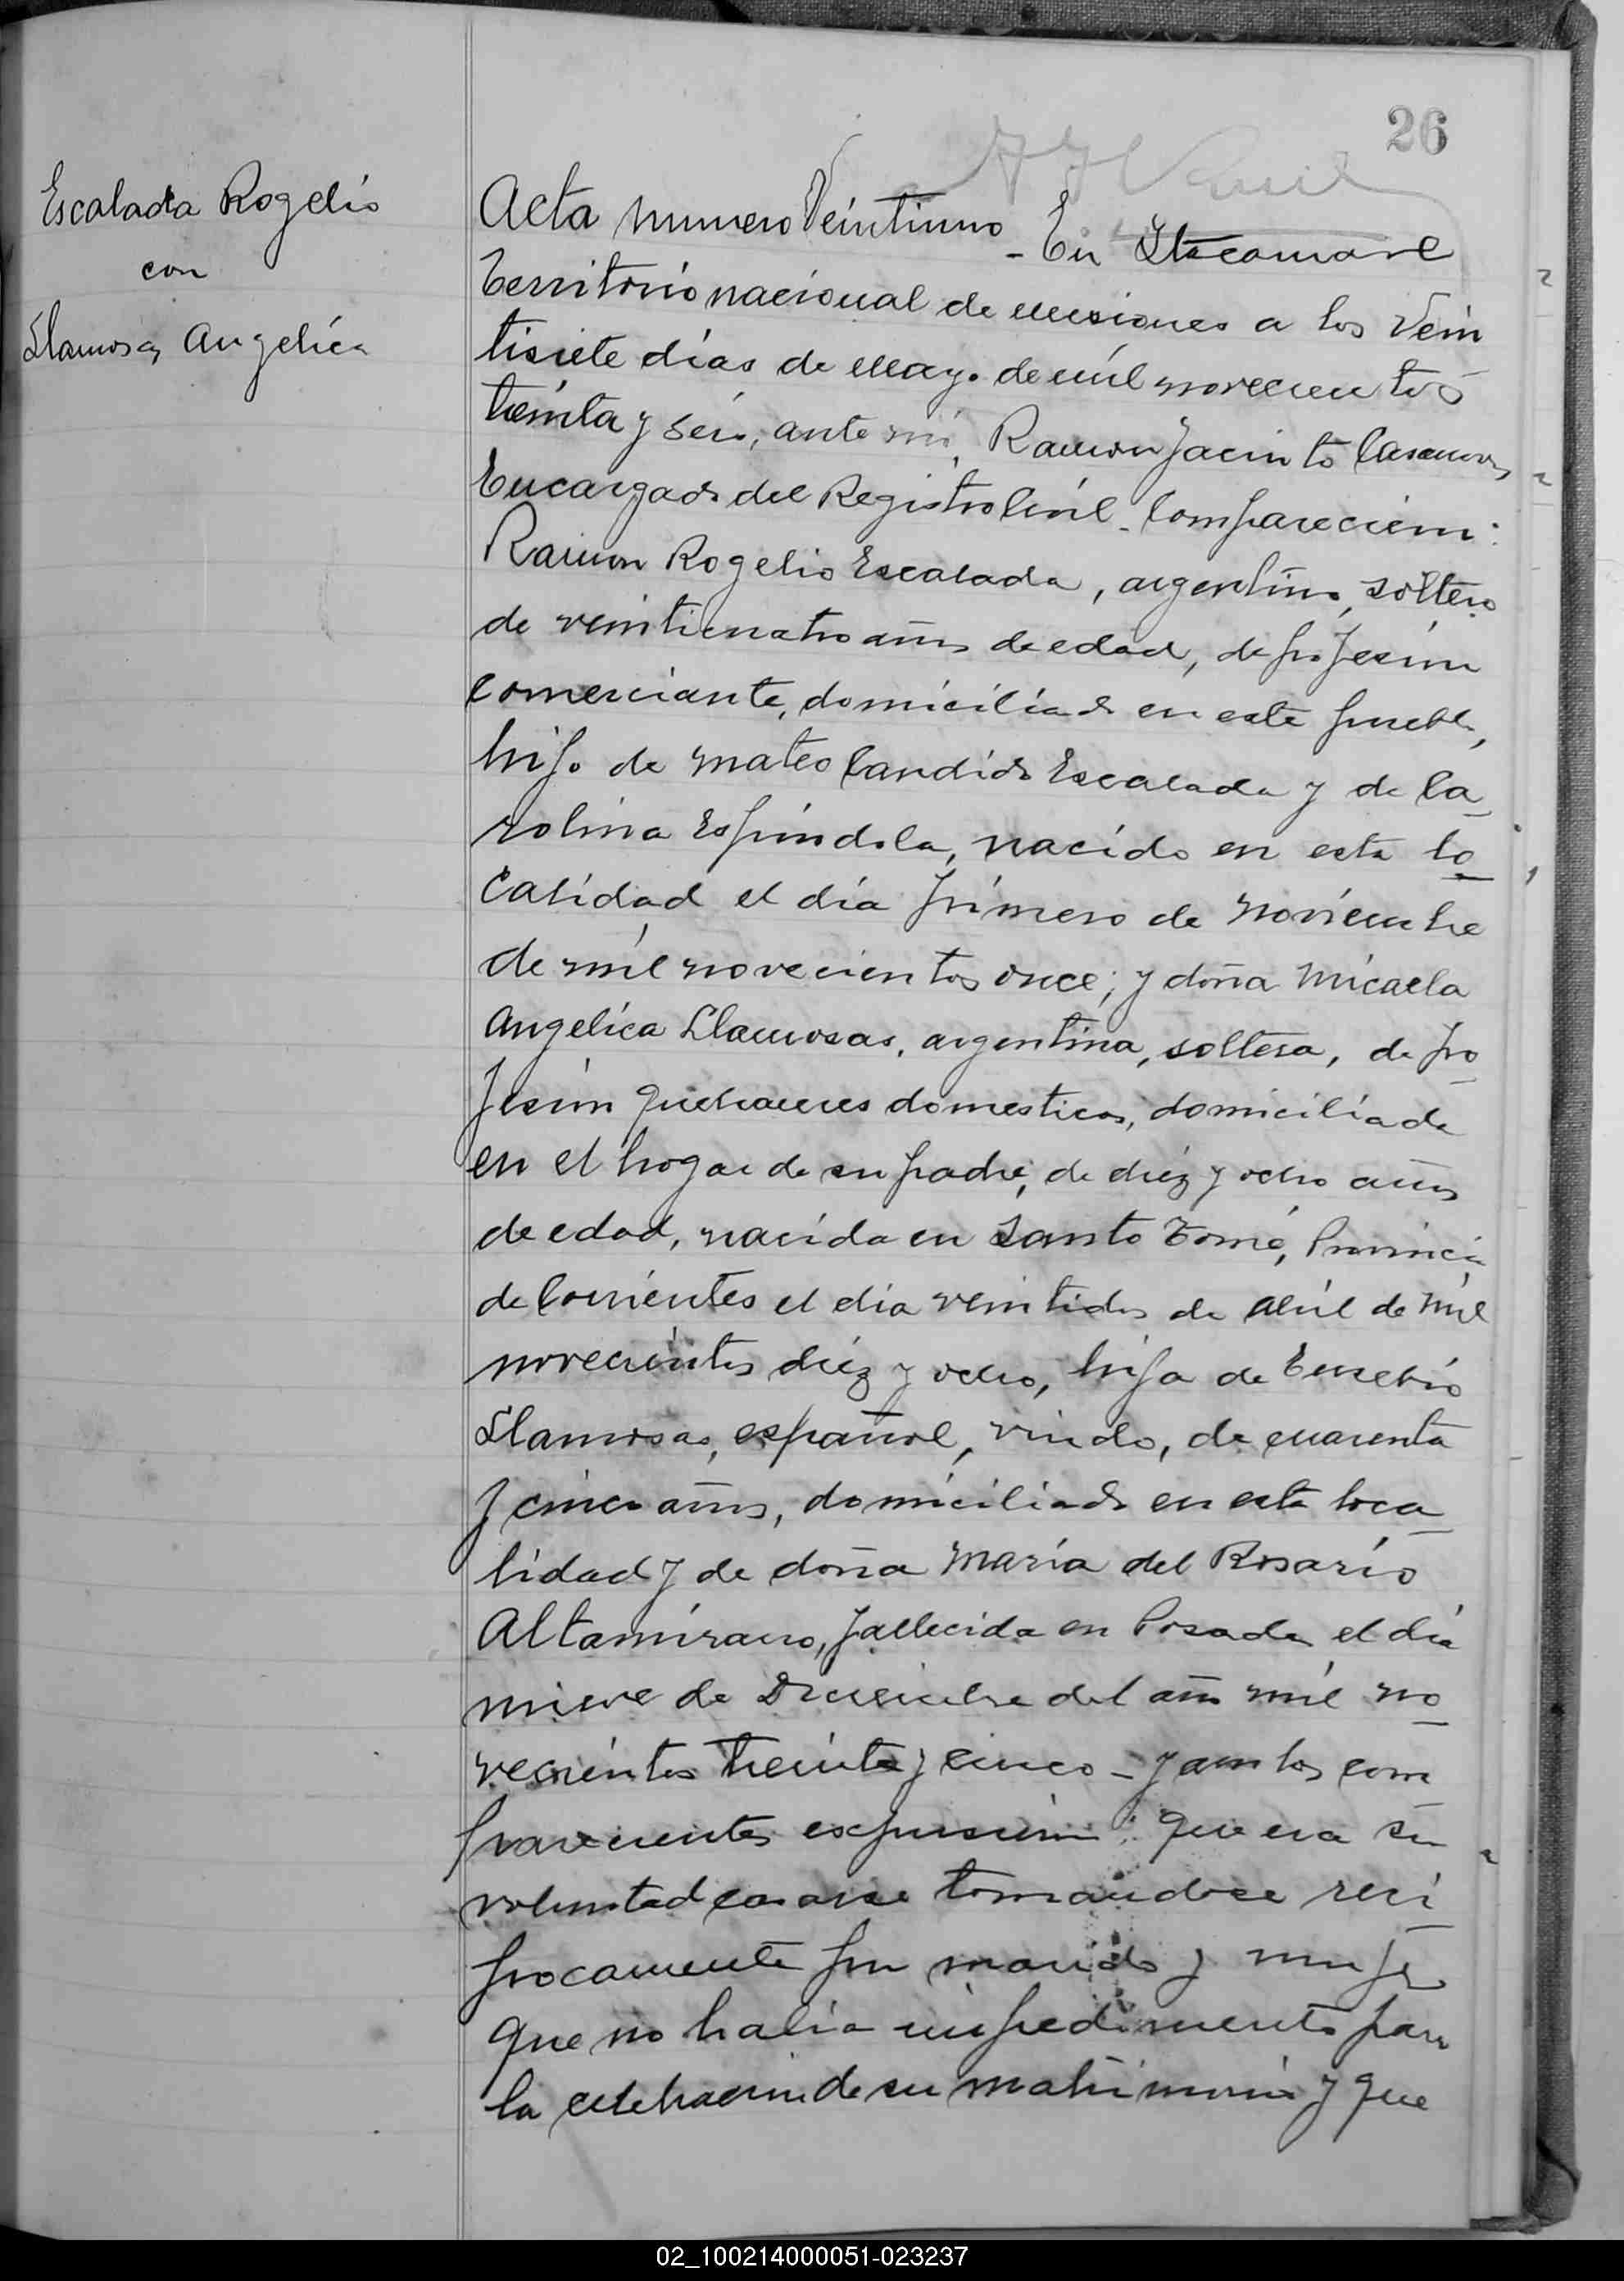 26
Escalada Rogelio
con
Llamosas Angelica
Acta numero Veintiuno - En Itacaruaré
Territorio nacional de Misiones a los Vein
tisiete días de Mayo de mil novecientos
treinta y seis, ante mí, Ramon Jacinto Casanova
Encargado del Registro Civil - Comparecieron:
Ramon Rogelio Escalada, argentino, soltero
de veinticuatro años de edad, de profesion
comerciante, domiciliado en este pueblo,
hijo de Mateo Candido Escalada y de Ca
rolina Espindola, nacido en esta lo
calidad el día primero de Noviembre
de mil novecientos once; y doña Micaela
Angelica Llamosas, argentina, soltera, de pro
fesion quehaceres domesticos, domiciliada
en el hogar de su padre, de diez y ocho años
de edad, nacida en Santo Tomé, Provincia
de Corrientes el día veintidos de Abril de mil
novecientos diez y ocho, hija de Eusebio
Llamosas, español, viudo, de cuarenta
y cinco años, domiciliado en esta loca
lidad y de doña María del Rosario
Altamirano, fallecida en Posadas el día
nueve de Diciembre del año mil no
vecientos treinta y cinco - y ambos com
parecientes expusieron: que era su
voluntad casarse tomandose reci
procamente por marido y mujer
que no había impedimento para
la celebracion de su matrimonio y que
02_100214000051-023237